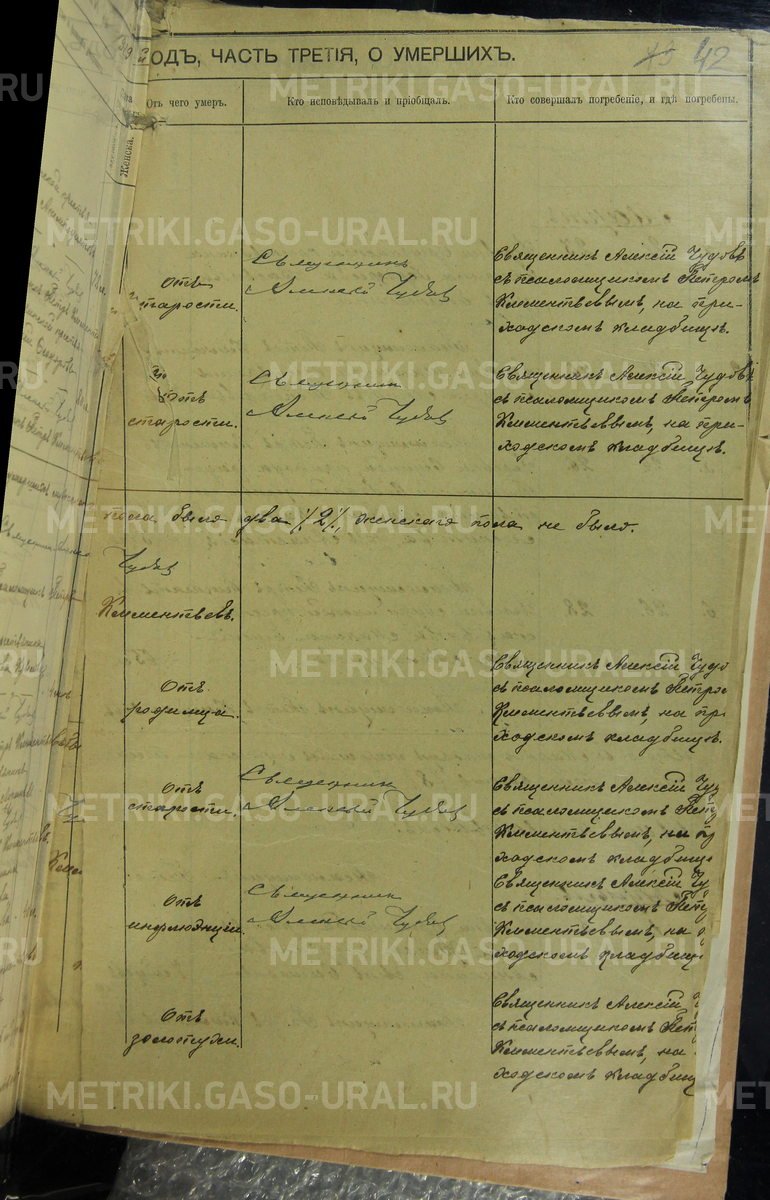 ОДЪ, ЧАСТЬ ТРЕТІЯ, О УМЕРШИХЪ.
42
Женска.
Отъ чего умеръ.
Кто исповѣдывалъ и пріобщалъ.
Кто совершалъ погребеніе, и гдѣ погребены.
Отъ
старости.
Священникъ
Алексѣй Чудовъ
Священникъ Алексій Чудовъ
съ псаломщикомъ Петромъ
Климентьевымъ, на при-
ходскомъ кладбищѣ.
Отъ
старости.
Священникъ
Алексѣй Чудовъ
Священникъ Алексій Чудовъ
съ псаломщикомъ Петромъ
Климентьевымъ, на при-
ходскомъ кладбищѣ.
пола было два /2/, женскаго пола не было.
Чудовъ
Климентьевъ.
Отъ
родимца.
Священникъ Алексій Чудо
съ псаломщикомъ Петро
Климентьевымъ, на пр
ходскомъ кладбищѣ.
Отъ
старости.
Священникъ
Алексѣй Чудовъ
Священникъ Алексій Чуд
съ псаломщикомъ Петр
Климентьевымъ, на пр
ходскомъ кладбищ
Отъ
инфлюэнціи.
Священникъ
Алексѣй Чудовъ
Священникъ Алексій Чу
съ псаломщикомъ Петр
Климентьевымъ, на
ходскомъ кладбищ
Отъ
золотухи.
Священникъ Алексій
съ псаломщикомъ Петр
Климентьевымъ, на
ходскомъ кладбищ
METRIKI.GASO-URAL.RU